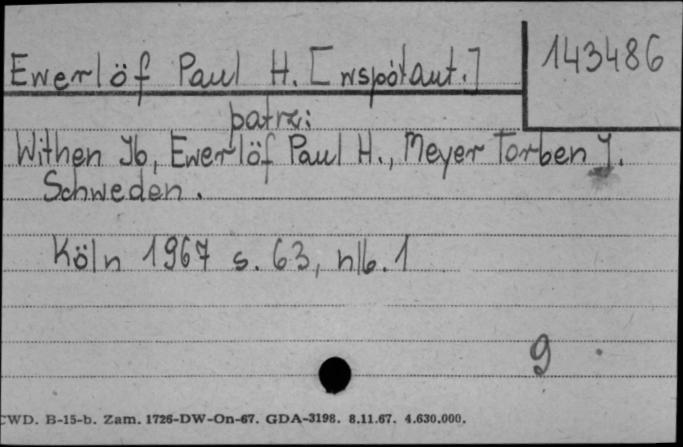 Ewerlöf Paul H. [współaut.]
143486
patrz:
Withen Ib, Ewerlöf Paul H., Meyer Torben J.
Schweden.
Köln 1967 s. 63, nlb. 1
9
CWD. B-15-b. Zam. 1726-DW-On-67. GDA-3198. 8.11.67. 4.630.000.